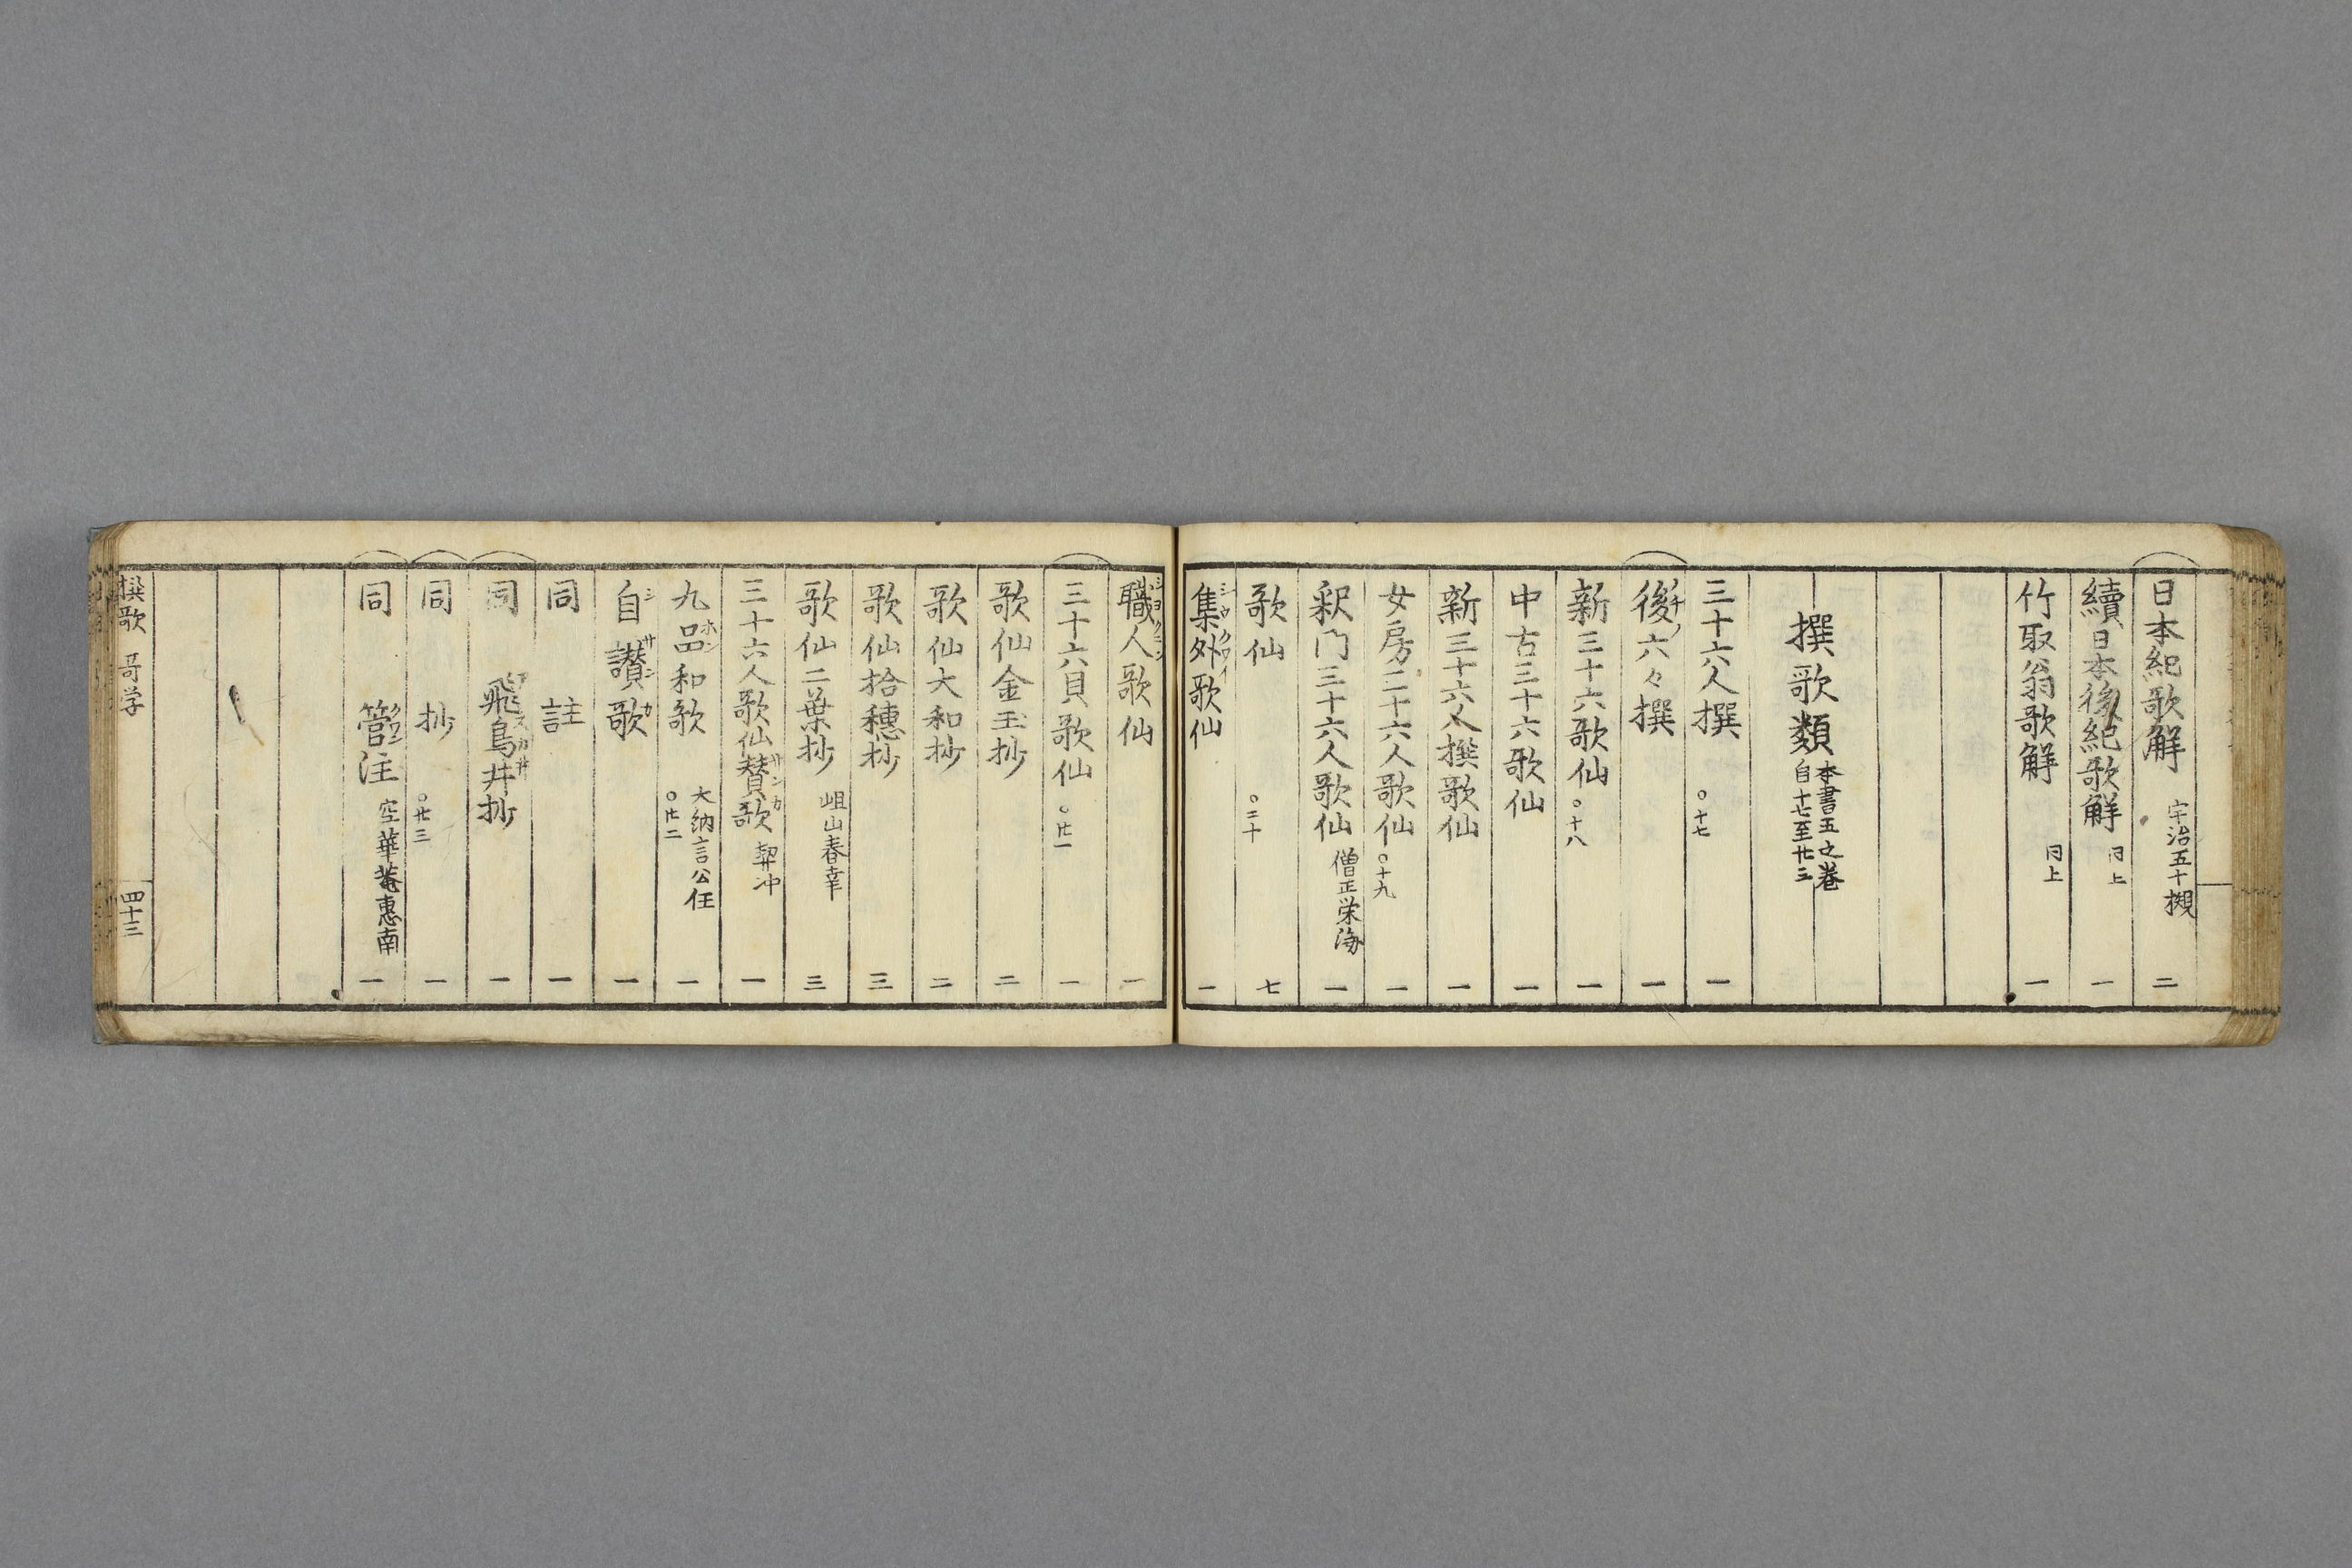 日本紀歌解 宇治五十槻 二
續日本後紀歌解 同上 一
竹取翁歌解 同上 一
撰歌類 本書五之巻
自十七至廿三
三十六人撰 ○十七 一
後六々撰 一
新三十六歌仙 ○十八 一
中古三十六歌仙 一
新三十六人撰歌仙 一
女房三十六人歌仙 ○十九 一
釈門三十六人歌仙 僧正栄海 一
歌仙 ○二十 七
集外歌仙 一
職人歌仙 一
三十六貝歌仙 ○廿一 一
歌仙金玉抄 二
歌仙大和抄 二
歌仙拾穗抄 三
歌仙二葉抄 岨山春幸 三
三十六人歌仙賛歌 サンカ 契冲 一
九品和歌 ホン 大納言公任 ○廿二 一
自讃歌 シ サン カ 一
同 註 一
同 飛鳥井抄 アスカ井 一
同 抄 ○廿三 一
同 管注 空華菴惠南 一
撰歌 哥学 四十三